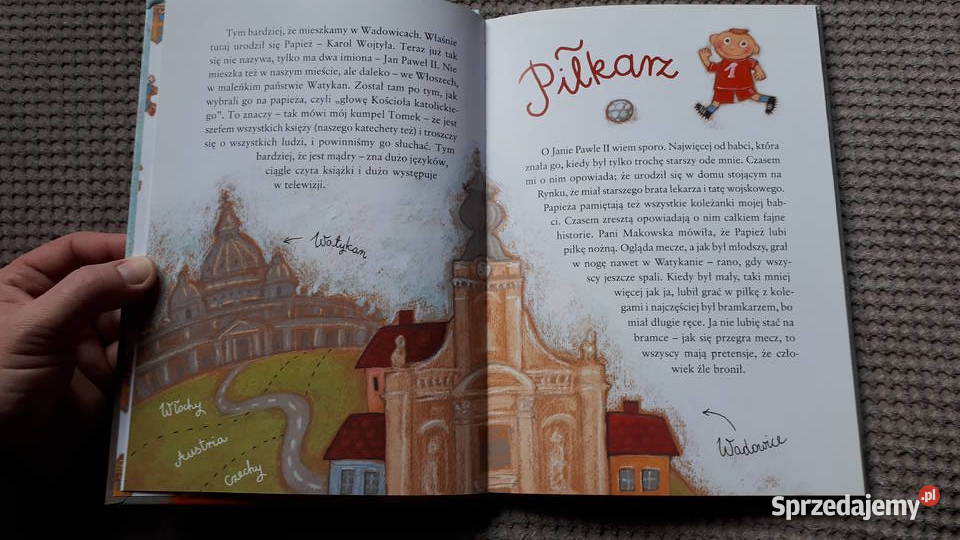 Tym bardziej, że mieszkamy w Wadowicach. Właśnie
tutaj urodził się Papież – Karol Wojtyła. Teraz już tak
się nie nazywa, tylko ma dwa imiona – Jan Paweł II. Nie
mieszka też w naszym mieście, ale daleko – we Włoszech,
w maleńkim państwie Watykan. Został tam po tym, jak
wybrali go na papieża, czyli „głowę Kościoła katolickie-
go”. To znaczy – tak mówi mój kumpel Tomek – że jest
szefem wszystkich księży (naszego katechety też) i troszczy
się o wszystkich ludzi, i powinniśmy go słuchać. Tym
bardziej, że jest mądry – zna dużo języków,
ciągle czyta książki i dużo występuje
w telewizji.
Watykan
Włochy
Austria
Czechy
Piłkarz
1
O Janie Pawle II wiem sporo. Najwięcej od babci, która
znała go, kiedy był tylko trochę starszy ode mnie. Czasem
mi o nim opowiada; że urodził się w domu stojącym na
Rynku, że miał starszego brata lekarza i tatę wojskowego.
Papieża pamiętają też wszystkie koleżanki mojej bab-
ci. Czasem zresztą opowiadają o nim całkiem fajne
historie. Pani Makowska mówiła, że Papież lubi
piłkę nożną. Ogląda mecze, a jak był młodszy, grał
w nogę nawet w Watykanie – rano, gdy wszy-
scy jeszcze spali. Kiedy był mały, taki mniej
więcej jak ja, lubił grać w piłkę z kole-
gami i najczęściej był bramkarzem, bo
miał długie ręce. Ja nie lubię stać na
bramce – jak się przegra mecz, to
wszyscy mają pretensje, że czło-
wiek źle bronił.
Wadowice
Sprzedajemy.pl